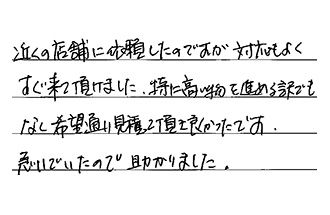 近くの店舗に依頼したのですが対応もよく
すぐ来て頂けました、特に高い物を進める訳でも
なし希望通り見積って頂き良かったです.
急いでいたので助かりました。